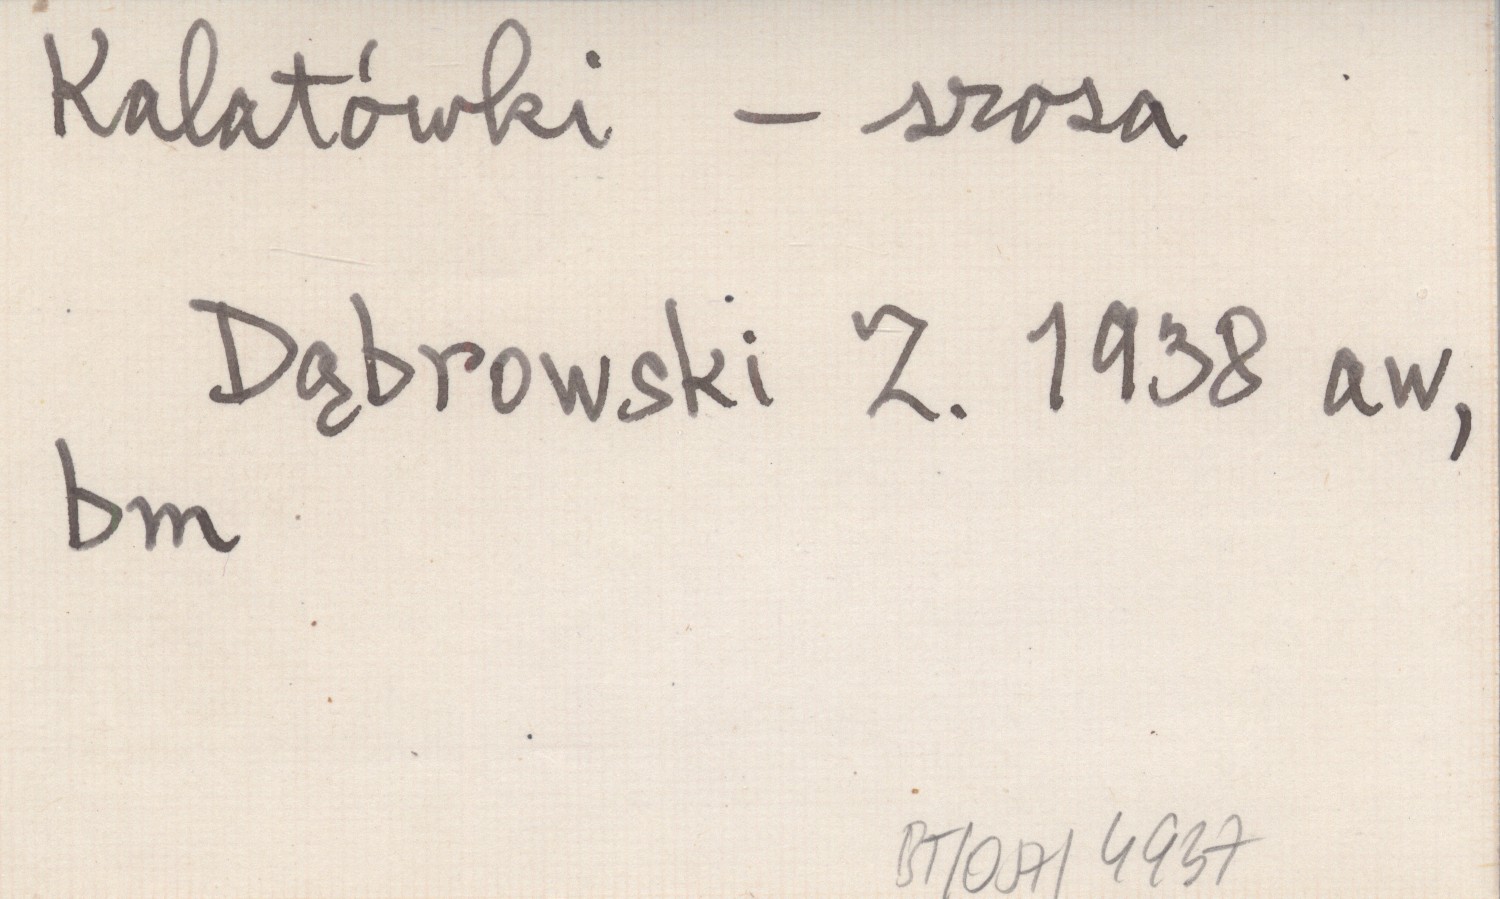 Kalatówki – szosa
Dąbrowski Z. 1938 aw,
bm
BT/OA7/ 4937